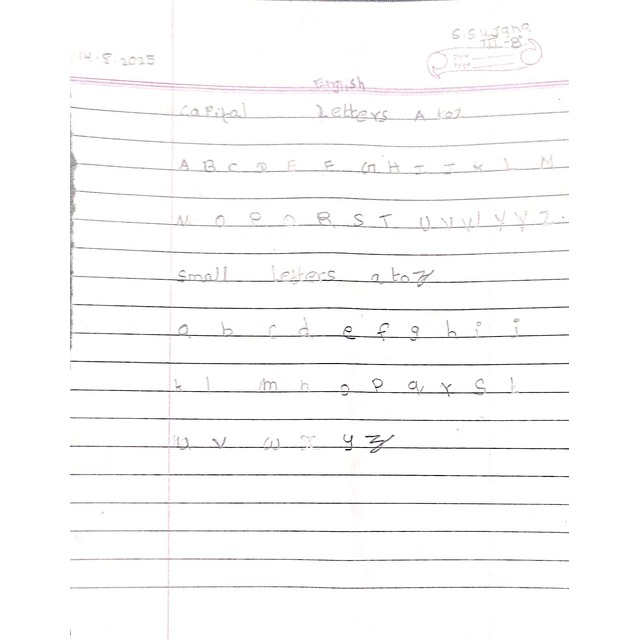 S.Sujana
III-B
14.8.2025
English
Capital Letters A to Z
A B C D E F G H I J K L M
N O P Q R S T U V W X Y Z.
Small Letters a to z
a b c d e f g h i j
k l m n o p q r s t
u v w x y z